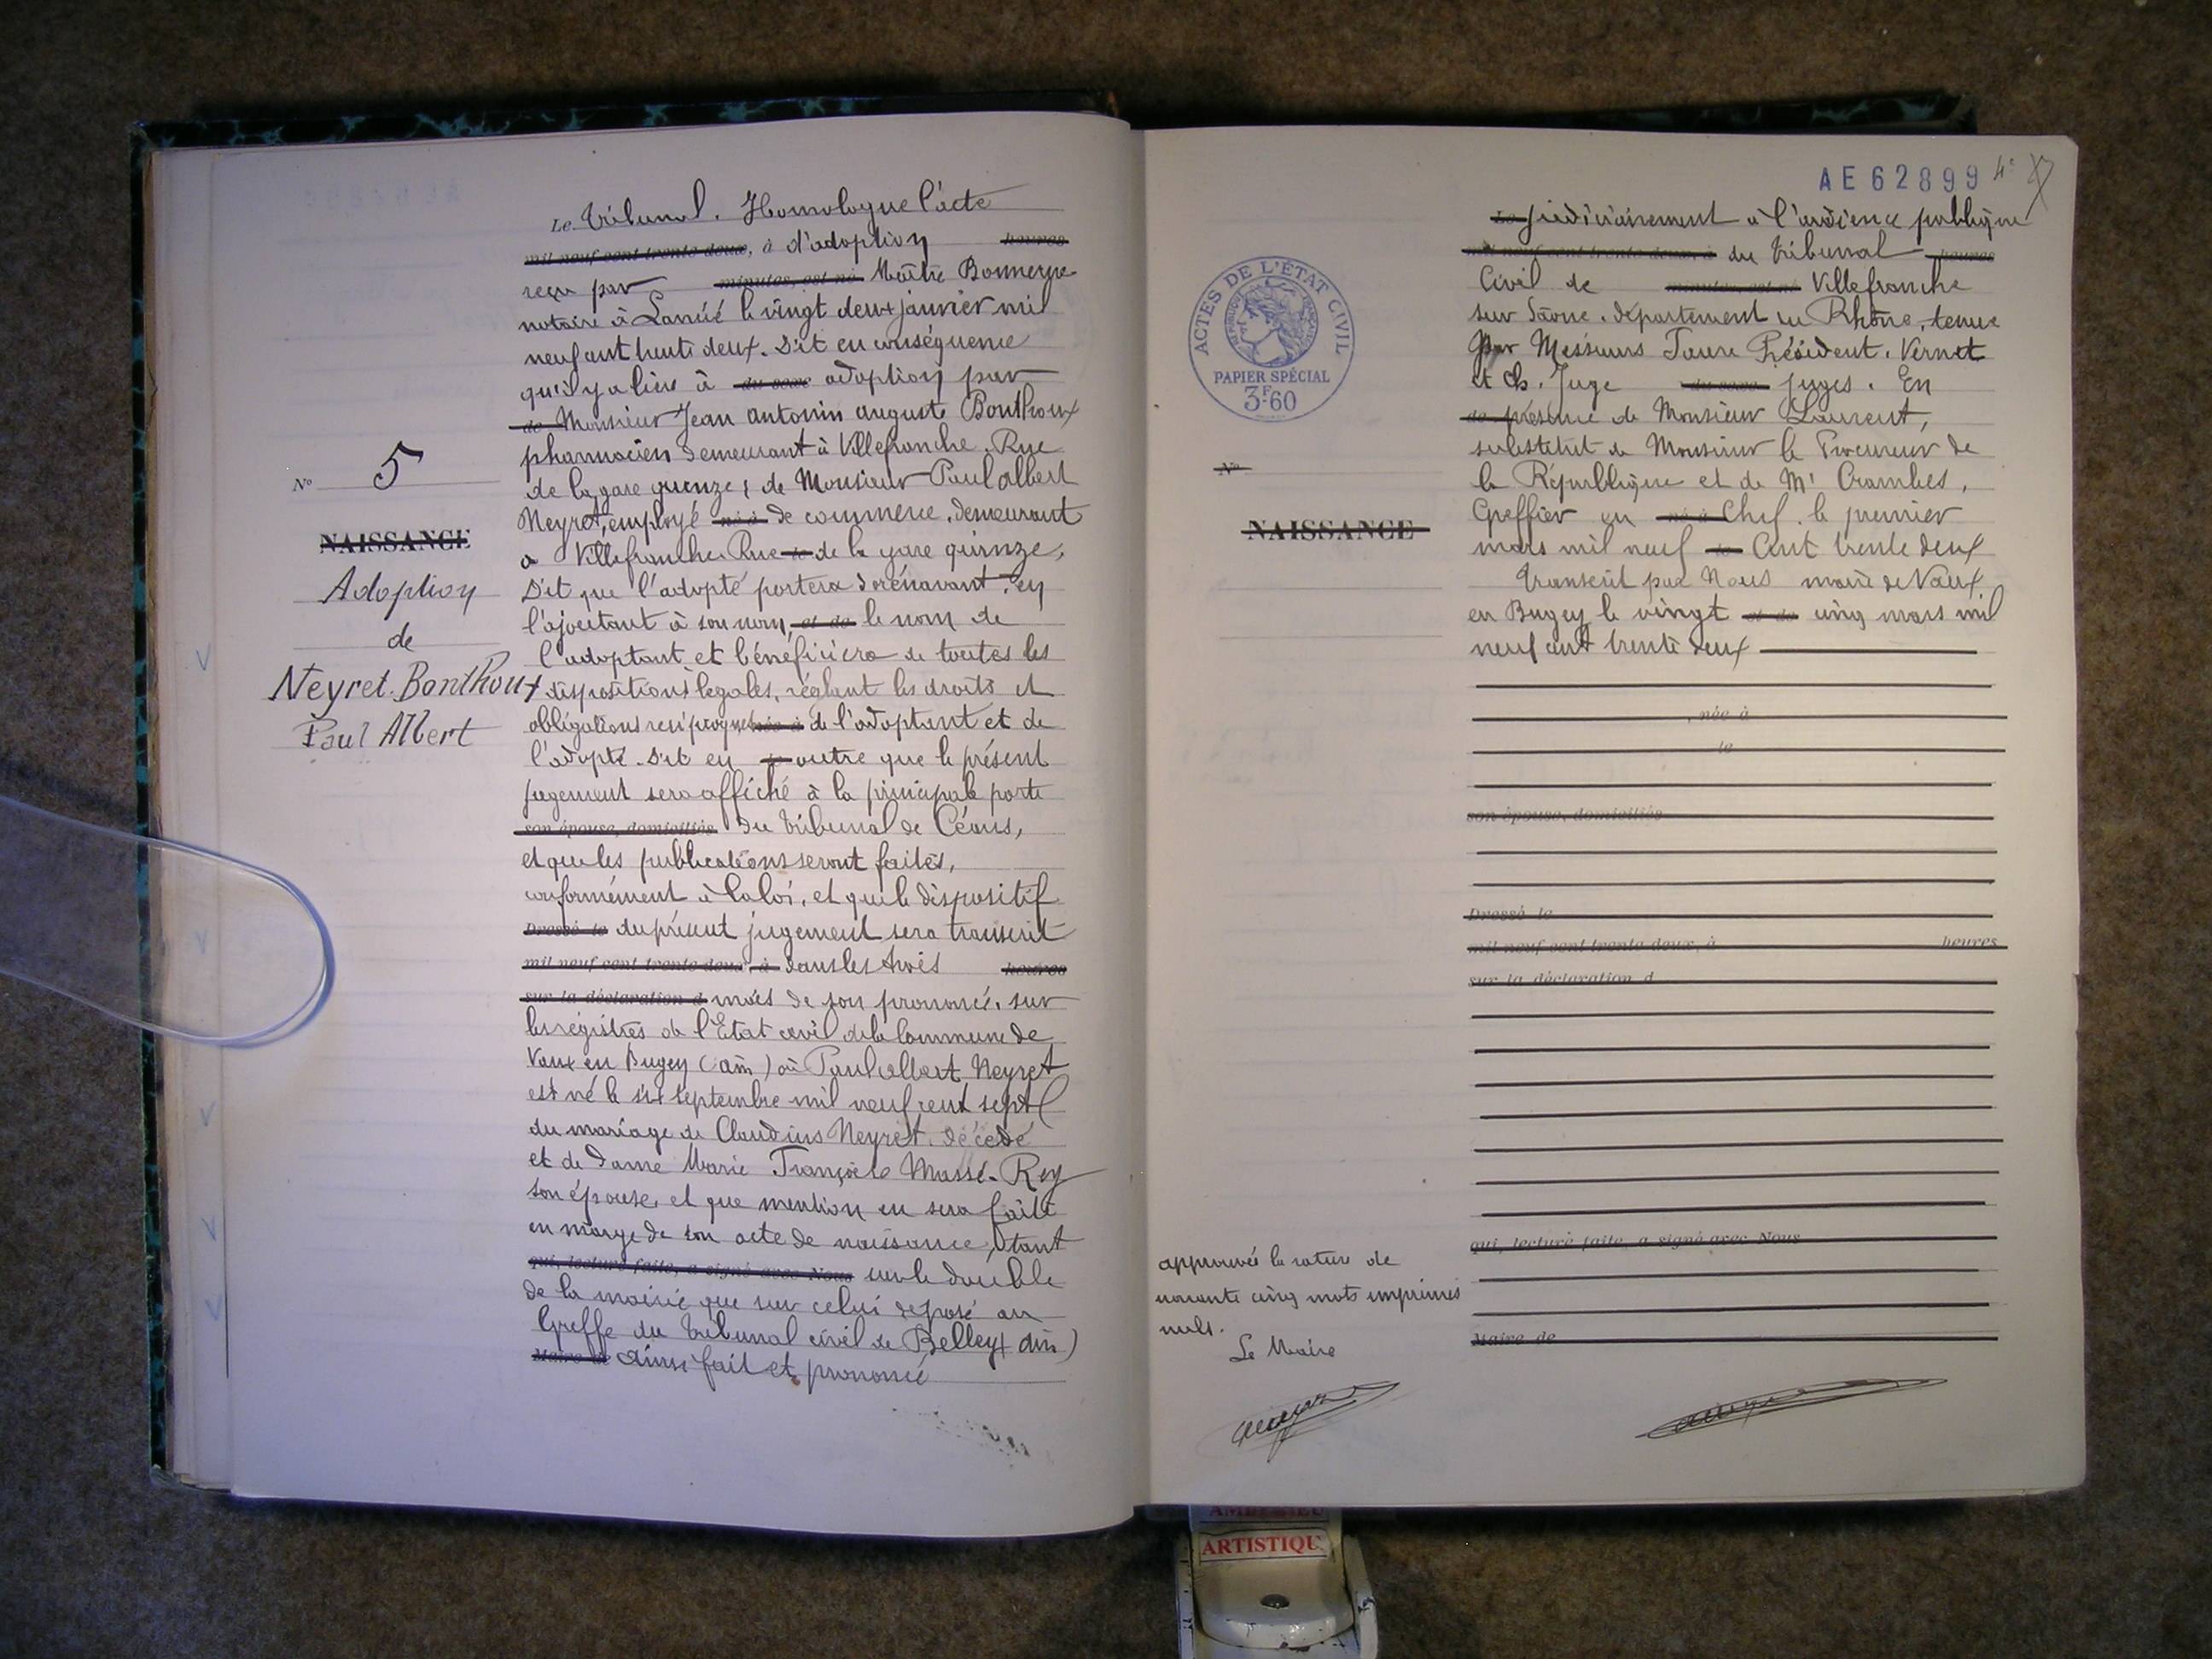 Le Tribunal. Homologue l'acte
mil neuf cent trente deux, à d'adoption heures
reçu par minutes, est né Maître Bonnerue
notaire à Lancié le vingt deux janvier mil
neuf cent trente deux. Dit en conséquence
qu'il y a lieu à du sexe adoption par
de Monsieur Jean Antonin Auguste Bonthoux
pharmacien demeurant à Villefranche. Rue
de la gare quinze, de Monsieur Paul Albert
Neyret, employé né à de commerce, demeurant
à Villefranche Rue le de la gare quinze,
Dit que l'adopté portera dorénavant, en
l'ajoutant à son nom, et de le nom de
l'adoptant et bénéficiera de toutes les
dispositions légales, réglant les droits et
obligations réciproques née à de l'adoptant et de
l'adopté. Dit en le outre que le présent
jugement sera affiché à la principale porte
son épouse, domiciliés du tribunal de Céans,
et que les publications seront faites,
conformément à la loi, et que le dispositif
Dressé le du présent jugement sera transcrit
mil neuf cent trente deux, à dans les trois heures
sur la déclaration d mois de son prononcé, sur
les régistres de l'Etat civil de la Commune de
Vaux en Bugey (Ain) où Paul Albert Neyret
est né le six septembre mil neuf cent sept
du mariage de Claudius Neyret. décédé
et de Dame Marie Françoise Masse-Rey
son épouse, et que mention en sera faite
en marge de son acte de naissance, tant
qui, lecture faite, a signé avec Nous sur le double
de la mairie que sur celui déposé au
Greffe du tribunal civil de Belley (Ain)
Maire de Ainsi fait et prononcé
N° 5
NAISSANCE
Adoption
de
Neyret-Bonthoux
Paul Albert
AE62899 4e
ACTES DE L'ÉTAT CIVIL
RÉPUBLIQUE FRANÇAISE
PAPIER SPÉCIAL
3F.60
N°
NAISSANCE
Le judiciairement à l'audience publique
mil neuf cent trente deux, à du Tribunal heures
Civil de minutes, est né Villefranche
sur Saône, département du Rhône, tenue
Par Messieurs Faure Président, Vernet
et Ch. Juge du sexe juges. En
de présence de Monsieur Laurent,
substitut de Monsieur le Procureur de
la République et de Mr Crambes,
Greffier en né à Chef, le premier
mars mil neuf le Cent trente deux
Transcrit par Nous maire de Vaux
en Bugey le vingt et de cinq mars mil
neuf cent trente deux
, née à
le
son épouse, domiciliés
Dressé le
mil neuf cent trente deux, à heures
sur la déclaration d
qui, lecture faite, a signé avec Nous
Maire de
approuvée la rature de
nonante cinq mots imprimés
nuls.
Le Maire
AMBERIEU
ARTISTIQU